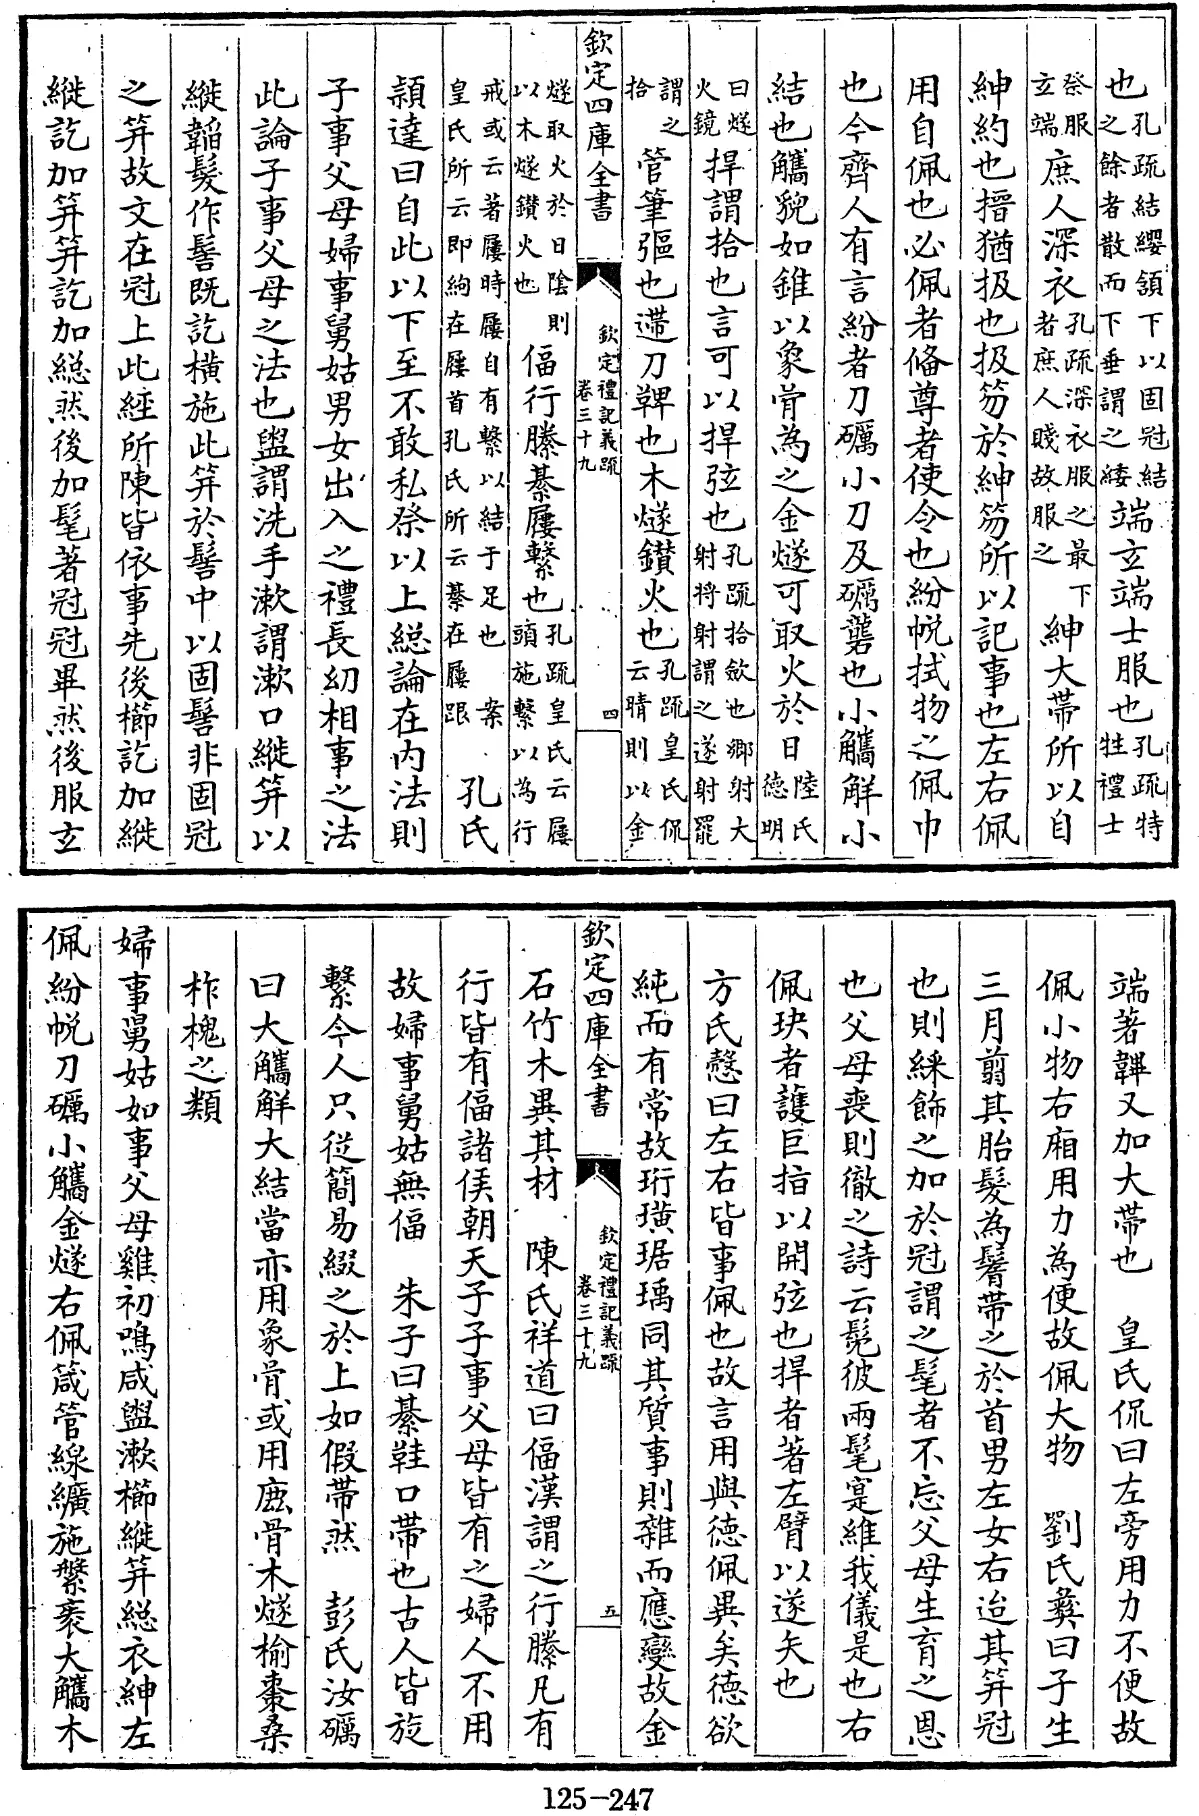 也孔疏結纓頷下以固冠結之餘者散而下垂謂之緌端玄端士服也孔疏特牲禮士
祭服玄端庶人深衣孔疏深衣服之最下者庶人賤故服之紳大帶所以自
紳約也搢猶扱也扱笏於紳笏所以記事也左右佩
用自佩也必佩者俻尊者使令也紛帨拭物之佩巾
也今齊人有言紛者刀礪小刀及礪礱也小觿解小
結也觿貌如錐以象骨為之金燧可取火於日陸氏德明
曰燧火鏡捍謂拾也言可以捍弦也孔疏拾斂也鄉射大射將射謂之遂射罷
謂之拾管筆彄也遰刀鞞也木燧鑽火也孔疏皇氏侃云晴則以金
欽定四庫全書
欽定禮記義疏
卷三十九
四
燧取火於日陰則以木燧鑽火也偪行縢綦屨繫也孔疏皇氏云屨頭施繫以為行
戒或云著屨時屨自有繫以結于足也 案皇氏所云即絇在屨首孔氏所云綦在屨跟 孔氏
頴達曰自此以下至不敢私祭以上總論在内法則
子事父母婦事舅姑男女出入之禮長幼相事之法
此論子事父母之法也盥謂洗手漱謂漱口縰笄以
縰韜髮作髻既訖橫施此笄於髻中以固髻非固冠
之笄故文在冠上此經所陳皆依事先後櫛訖加縰
縰訖加笄笄訖加總然後加髦著冠冠畢然後服玄
端著韠又加大帶也 皇氏侃曰左旁用力不便故
佩小物右廂用力為便故佩大物 劉氏彝曰子生
三月翦其胎髮為鬌帶之於首男左女右迨其笄冠
也則綵飾之加於冠謂之髦者不忘父母生育之恩
也父母喪則徹之詩云髧彼兩髦寔維我儀是也右
佩玦者䕶巨指以開弦也捍者著左臂以遂矢也
方氏慤曰左右皆事佩也故言用與德佩異矣德欲
純而有常故珩璜琚瑀同其質事則雜而應變故金
欽定四庫全書
欽定禮記義疏
卷三十九
五
石竹木異其材 陳氏祥道曰偪漢謂之行縢凡有
行皆有偪諸侯朝天子子事父母皆有之婦人不用
故婦事舅姑無偪 朱子曰綦鞋口帶也古人皆旋
繫今人只從簡易綴之於上如假帶然 彭氏汝礪
曰大觿解大結當亦用象骨或用鹿骨木燧榆棗桑
柞槐之類
婦事舅姑如事父母雞初鳴咸盥漱櫛縰笄總衣紳左
佩紛帨刀礪小觿金燧右佩箴管線纊施縏袠大觿木
125-247